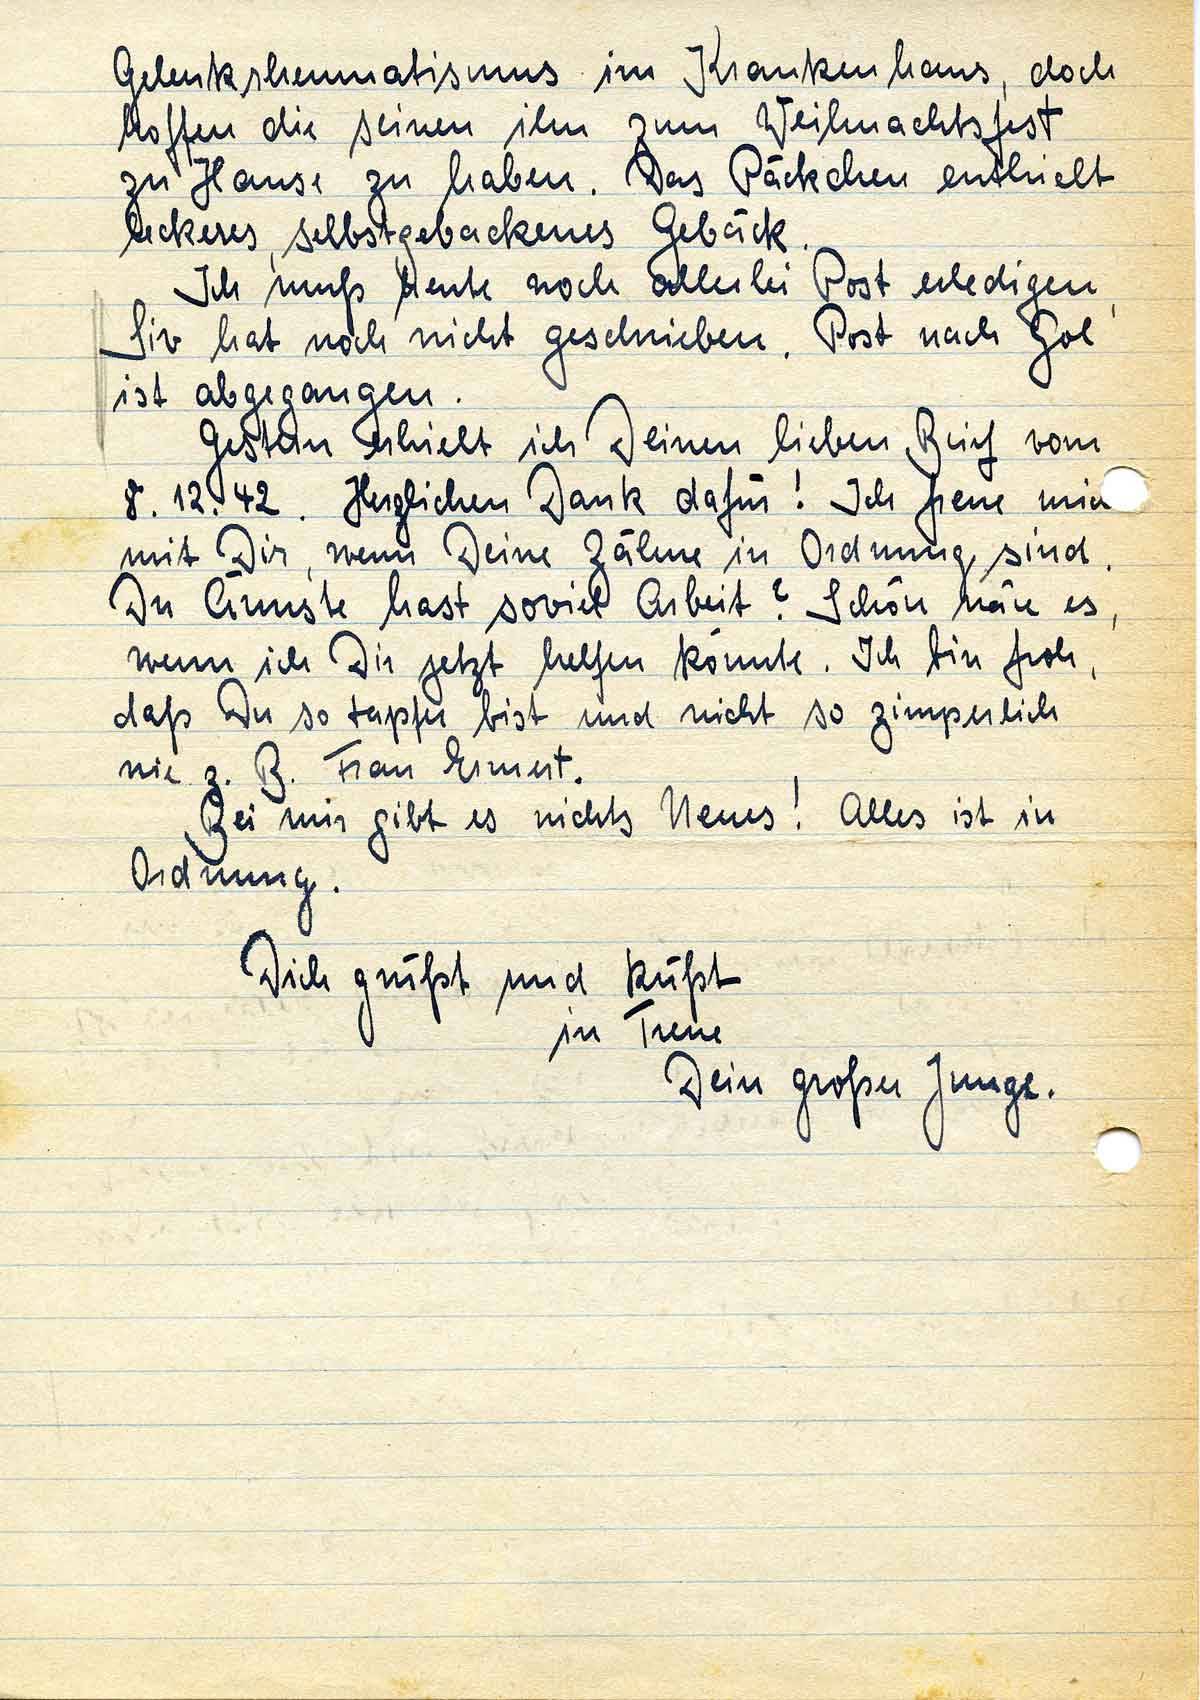 Gelenksrheumatismus im Krankenhaus, doch
hoffen die seinen ihn zum Weihnachtsfest
zu Hause zu haben. Das Päckchen enthielt
leckeres, selbstgebackenes Gebäck.
Ich muß heute noch allerlei Post erledigen,
Siv hat noch nicht geschrieben. Post nach Gol
ist abgegangen.
Gestern erhielt ich Deinen lieben Brief vom
8.12.42. Herzlichen Dank dafür! Ich freue mich
mit Dir, wenn Deine Zähne in Ordnung sind.
Du Ärmste hast soviel Arbeit? Schön wäre es,
wenn ich Dir jetzt helfen könnte. Ich bin froh,
daß Du so tapfer bist und nicht so zimperlich
wie z. B. Frau Ermert.
Bei mir gibt es nichts Neues! Alles ist in
Ordnung.
Dich grüßt und küßt
in Treue
Dein großer Junge.